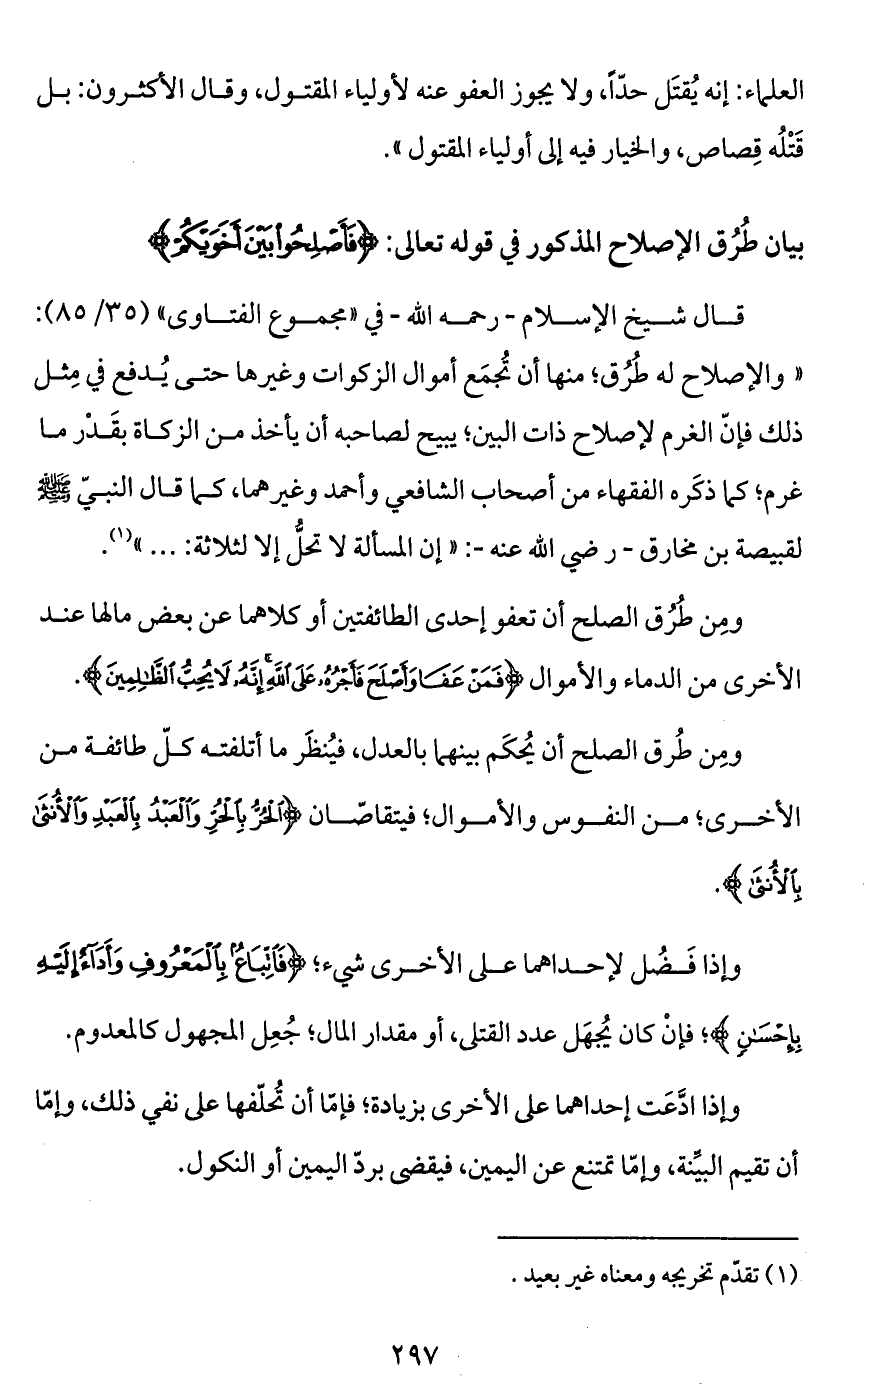 العلماء: إنه يُقتَل حدّاً، ولا يجوز العفو عنه لأولياء المقتول، وقال الأكثرون: بل
قَتْلُه قِصاص، والخيار فيه إلى أولياء المقتول».
بيان طُرُق الإصلاح المذكور في قوله تعالى: ﴿فَأَصْلِحُوا۟ بَيْنَ أَخَوَيْكُمْ﴾
قال شيخ الإسلام - رحمه الله - في «مجموع الفتاوى» (٣٥/ ٨٥):
« والإصلاح له طُرُق؛ منها أن تُجمَع أموال الزكوات وغيرها حتى يُدفع في مِثل
ذلك فإنّ الغرم لإصلاح ذات البين؛ يبيح لصاحبه أن يأخذ من الزكاة بقَدْر ما
غرم؛ كما ذكَره الفقهاء من أصحاب الشافعي وأحمد وغيرهما، كما قال النبيّ ﷺ
لقبيصة بن مخارق - رضي الله عنه -: « إن المسألة لا تحلُّ إلا لثلاثة: ... »(١).
ومِن طُرُق الصلح أن تعفو إحدى الطائفتين أو كلاهما عن بعض مالها عند
الأخرى من الدماء والأموال ﴿فَمَنْ عَفَا وَأَصْلَحَ فَأَجْرُهُۥ عَلَى ٱللَّهِ ۚ إِنَّهُۥ لَا يُحِبُّ ٱلظَّٰلِمِينَ﴾.
ومِن طُرق الصلح أن يُحكَم بينهما بالعدل، فيُنظَر ما أتلفته كلّ طائفة من
الأخرى؛ من النفوس والأموال؛ فيتقاصّان ﴿ٱلْحُرُّ بِٱلْحُرِّ وَٱلْعَبْدُ بِٱلْعَبْدِ وَٱلْأُنثَىٰ
بِٱلْأُنثَىٰ﴾.
وإذا فَضُل لإحداهما على الأخرى شيء؛ ﴿فَٱتِّبَاعٌۢ بِٱلْمَعْرُوفِ وَأَدَآءٌ إِلَيْهِ
بِإِحْسَٰنٍ﴾؛ فإنْ كان يُجهَل عدد القتلى، أو مقدار المال؛ جُعِل المجهول كالمعدوم.
وإذا ادَّعَت إحداهما على الأخرى بزيادة؛ فإمّا أن تُحلّفها على نفي ذلك، وإمّا
أن تقيم البيِّنة، وإمّا تمتنع عن اليمين، فيقضى بردّ اليمين أو النكول.
(١) تقدّم تخريجه ومعناه غير بعيد .
٢٩٧